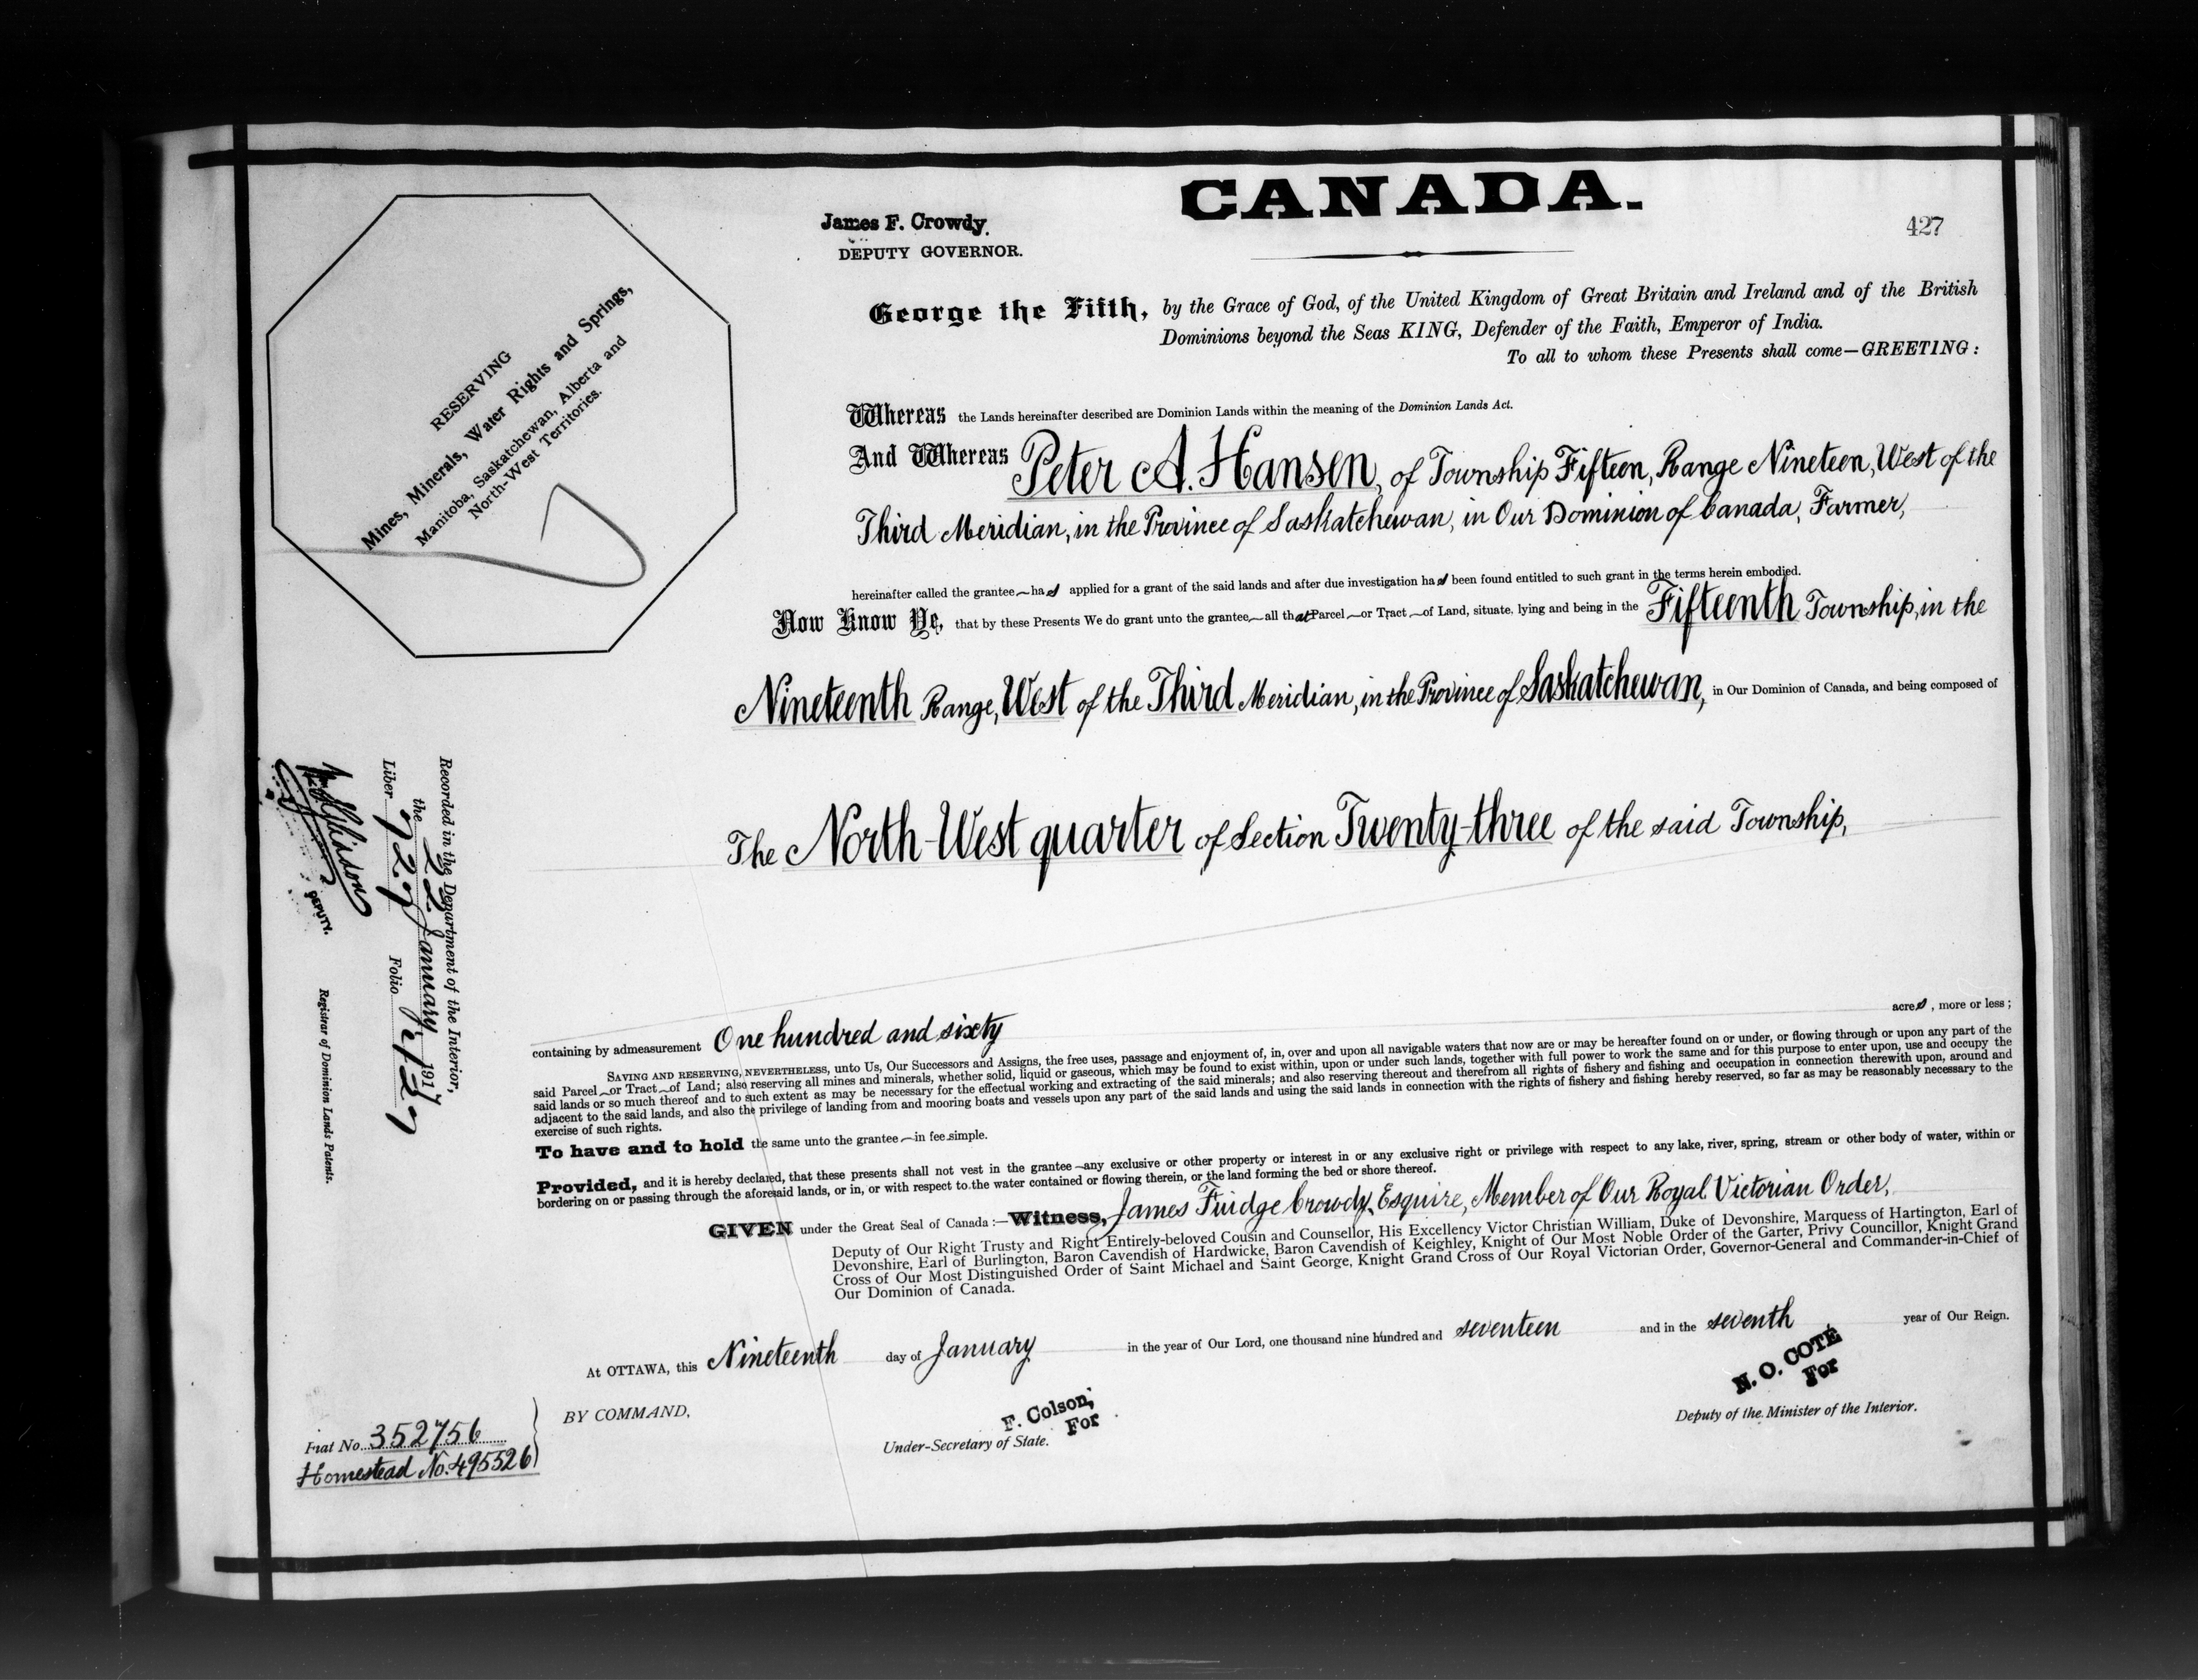 CANADA.
James F. Crowdy.
DEPUTY GOVERNOR.
427
RESERVING
Mines, Minerals, Water Rights and Springs,
Manitoba, Saskatchewan, Alberta and
North-West Territories.
George the Fifth, by the Grace of God, of the United Kingdom of Great Britain and Ireland and of the British
Dominions beyond the Seas KING, Defender of the Faith, Emperor of India.
To all to whom these Presents shall come—GREETING:
Whereas the Lands hereinafter described are Dominion Lands within the meaning of the Dominion Lands Act.
And Whereas Peter A. Hansen, of Township Fifteen, Range Nineteen, West of the
Third Meridian, in the Province of Saskatchewan, in Our Dominion of Canada, Farmer,
hereinafter called the grantee has applied for a grant of the said lands and after due investigation has been found entitled to such grant in the terms herein embodied.
Now Know Ye, that by these Presents We do grant unto the grantee, all that Parcel or Tract of Land, situate, lying and being in the Fifteenth Township, in the
Nineteenth Range, West of the Third Meridian, in the Province of Saskatchewan, in Our Dominion of Canada, and being composed of
The North-West quarter of Section Twenty-three of the said Township,
containing by admeasurement One hundred and sixty acres, more or less;
SAVING AND RESERVING, NEVERTHELESS, unto Us, Our Successors and Assigns, the free uses, passage and enjoyment of, in, over and upon all navigable waters that now are or may be hereafter found on or under, or flowing through or upon any part of the
said Parcel or Tract of Land; also reserving all mines and minerals, whether solid, liquid or gaseous, which may be found to exist within, upon or under such lands, together with full power to work the same and for this purpose to enter upon, use and occupy the
said lands or so much thereof and to such extent as may be necessary for the effectual working and extracting of the said minerals; and also reserving thereout and therefrom all rights of fishery and fishing and occupation in connection therewith upon, around and
adjacent to the said lands, and also the privilege of landing from and mooring boats and vessels upon any part of the said lands and using the said lands in connection with the rights of fishery and fishing hereby reserved, so far as may be reasonably necessary to the
exercise of such rights.
To have and to hold the same unto the grantee in fee simple.
Provided, and it is hereby declared, that these presents shall not vest in the grantee any exclusive or other property or interest in or any exclusive right or privilege with respect to any lake, river, spring, stream or other body of water, within or
bordering on or passing through the aforesaid lands, or in, or with respect to the water contained or flowing therein, or the land forming the bed or shore thereof.
GIVEN under the Great Seal of Canada:—Witness, James Fuidge Crowdy, Esquire, Member of Our Royal Victorian Order,
Deputy of Our Right Trusty and Right Entirely-beloved Cousin and Counsellor, His Excellency Victor Christian William, Duke of Devonshire, Marquess of Hartington, Earl of
Devonshire, Earl of Burlington, Baron Cavendish of Hardwicke, Baron Cavendish of Keighley, Knight of Our Most Noble Order of the Garter, Privy Councillor, Knight Grand
Cross of Our Most Distinguished Order of Saint Michael and Saint George, Knight Grand Cross of Our Royal Victorian Order, Governor-General and Commander-in-Chief of
Our Dominion of Canada.
At OTTAWA, this Nineteenth day of January in the year of Our Lord, one thousand nine hundred and seventeen and in the seventh year of Our Reign.
BY COMMAND,
F. Colson,
For
Under-Secretary of State.
N. O. COTÉ
For
Deputy of the Minister of the Interior.
Recorded in the Department of the Interior,
the 22 January 1917
Liber 727 Folio 427
DEPUTY.
Registrar of Dominion Lands Patents.
Fiat No. 352756
Homestead No. 495526